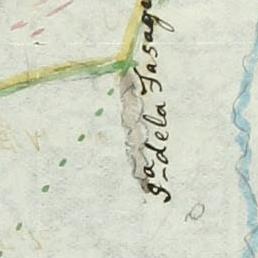 gª de la Jasage